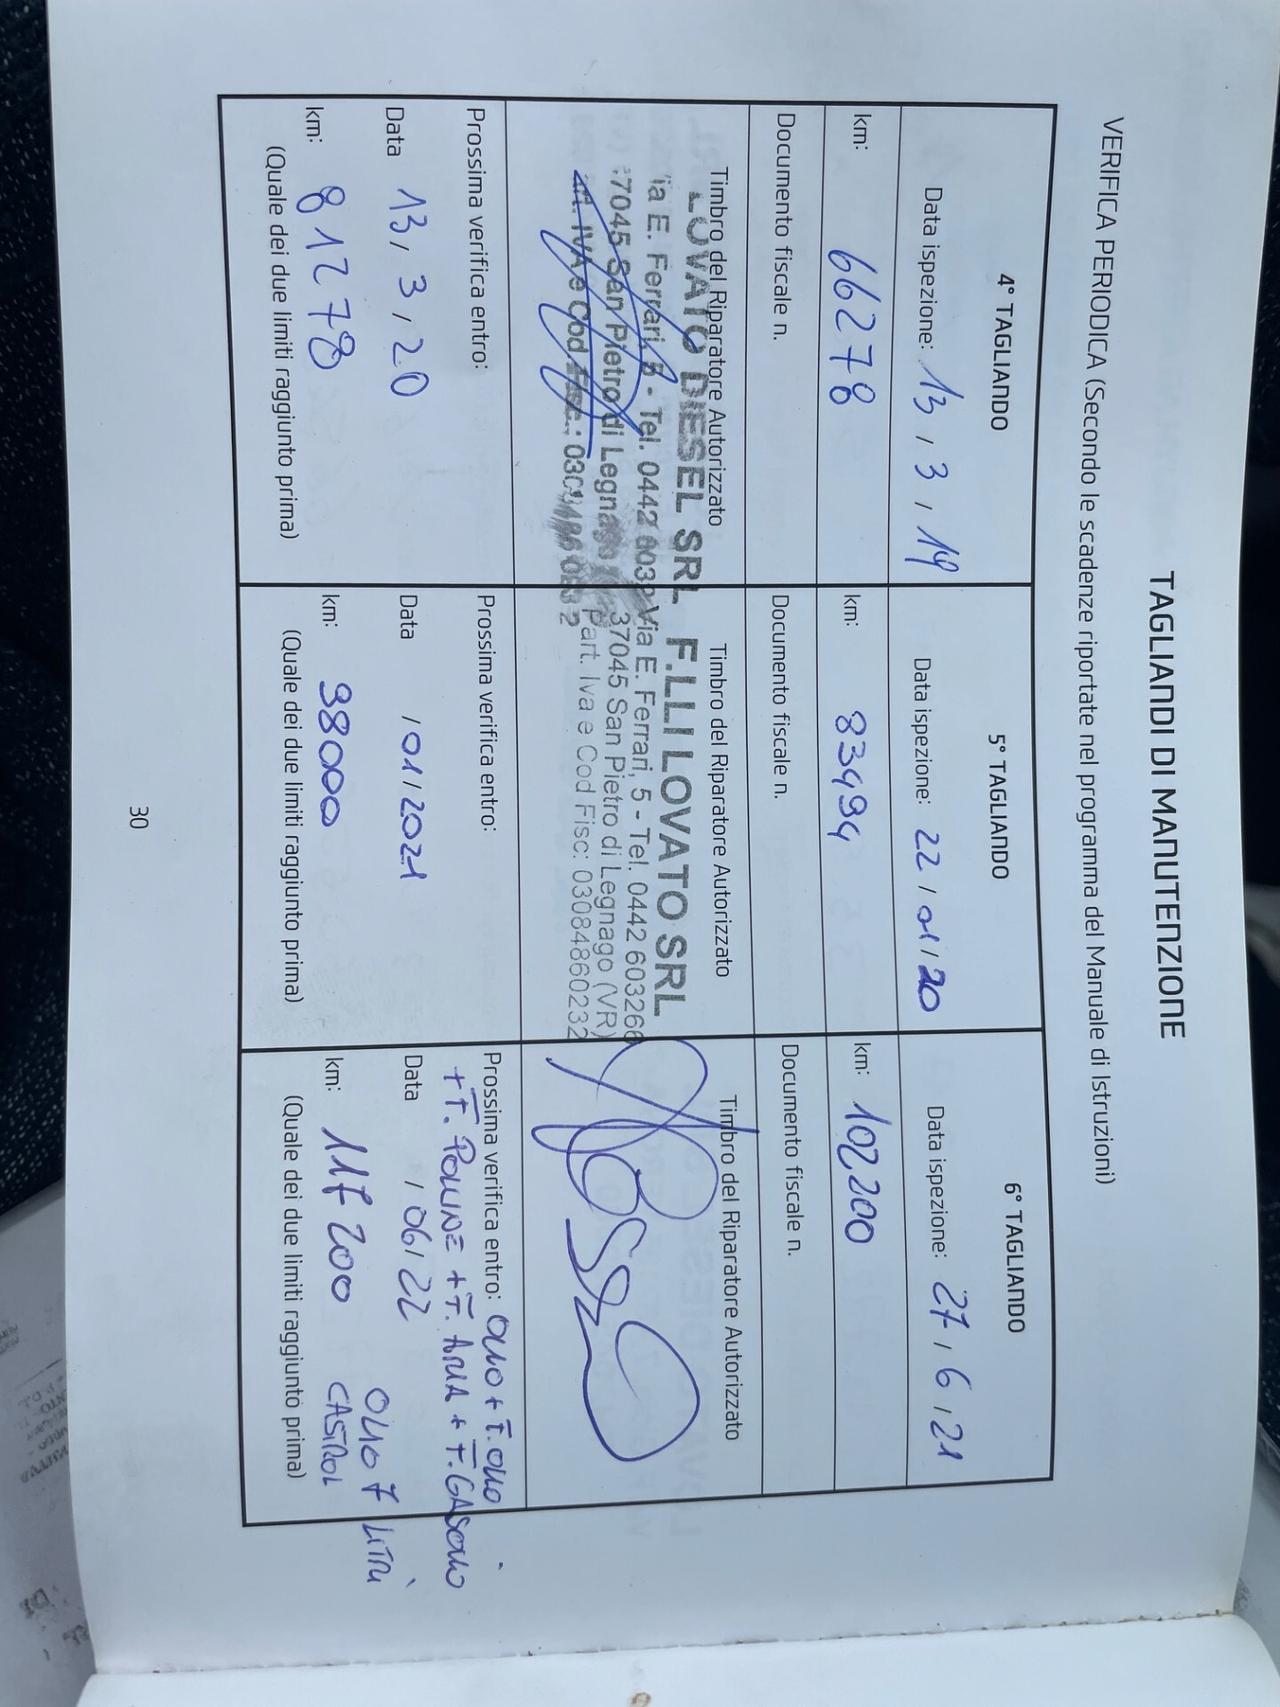 TAGLIANDI DI MANUTENZIONE
VERIFICA PERIODICA (Secondo le scadenze riportate nel programma del Manuale di Istruzioni)
4° TAGLIANDO
Data ispezione: 13 / 3 / 19
km: 66278
Documento fiscale n.
Timbro del Riparatore Autorizzato
LOVATO DIESEL SRL
Via E. Ferrari, 5 - Tel. 0442
37045 San Pietro di Legnago
IVA e Cod Fisc.:
Prossima verifica entro:
Data 13 / 3 / 20
km: 81278
(Quale dei due limiti raggiunto prima)
5° TAGLIANDO
Data ispezione: 22 / 01 / 20
km: 83494
Documento fiscale n.
Timbro del Riparatore Autorizzato
F.LLI LOVATO SRL
Via E. Ferrari, 5 - Tel. 0442 603266
37045 San Pietro di Legnago (VR)
Part. Iva e Cod Fisc: 03084860232
Prossima verifica entro:
Data / 01 / 2021
km: 98000
(Quale dei due limiti raggiunto prima)
6° TAGLIANDO
Data ispezione: 27 / 6 / 21
km: 102200
Documento fiscale n.
Timbro del Riparatore Autorizzato
Prossima verifica entro: OLIO + F. OLIO
+ F. POLLINE + F. ARIA + F. GASOLIO
Data / 06 / 22
OLIO 7 LITRI
km: 117200 CASTROL
(Quale dei due limiti raggiunto prima)
30